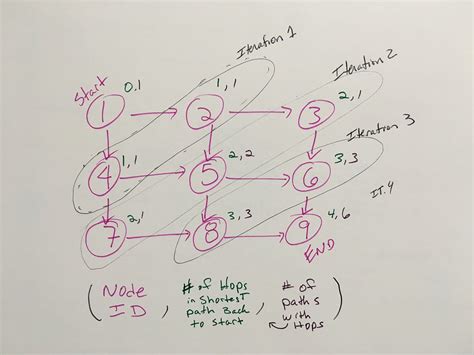 Iteration 1
Start
0,1
1,1
Iteration 2
1
2
3
2,1
Iteration 3
1,1
2,2
3,3
4
5
6
IT. 4
2,1
3,3
4,6
7
8
9
END
(Node ID, # of Hops in Shortest path Back to Start, # of paths with Hops)